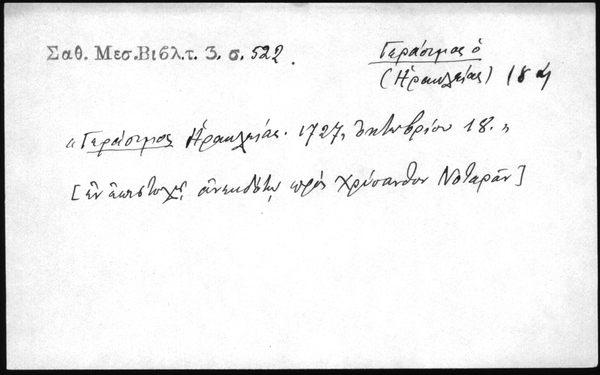 Σαθ. Μεσ. Βιβλ. τ. 3. σ. 522.
Γεράσιμος ὁ
(Ἡρακλείας) 18
«Γεράσιμος Ἡρακλείας. 1727, ὀκτωβρίου 18.»
[ἐν ἐπιστολῇ ἀνεκδότῳ πρὸς Χρύσανθον Νοταρᾶν]